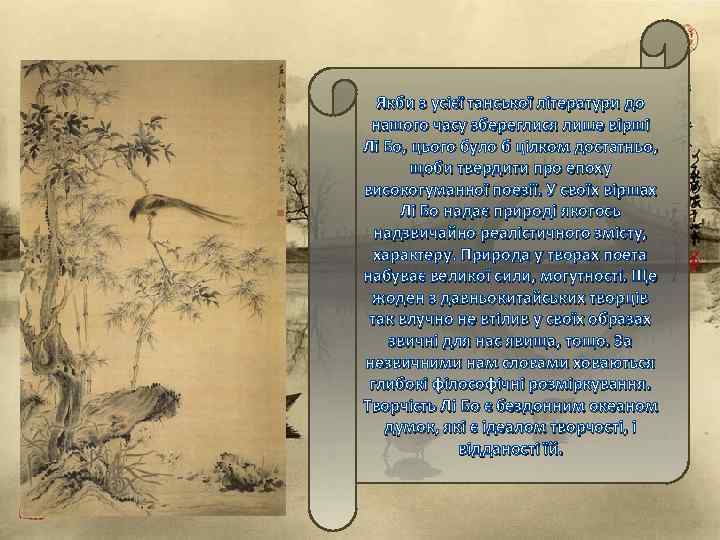 Якби з усієї танської літератури до
нашого часу збереглися лише вірші
Лі Бо, цього було б цілком достатньо,
щоби твердити про епоху
високогуманної поезії. У своїх віршах
Лі Бо надає природі якогось
надзвичайно реалістичного змісту,
характеру. Природа у творах поета
набуває великої сили, могутності. Ще
жоден з давньокитайських творців
так влучно не втілив у своїх образах
звичні для нас явища, тощо. За
незвичними нам словами ховаються
глибокі філософічні розміркування.
Творчість Лі Бо є бездонним океаном
думок, які є ідеалом творчості, і
відданості їй.